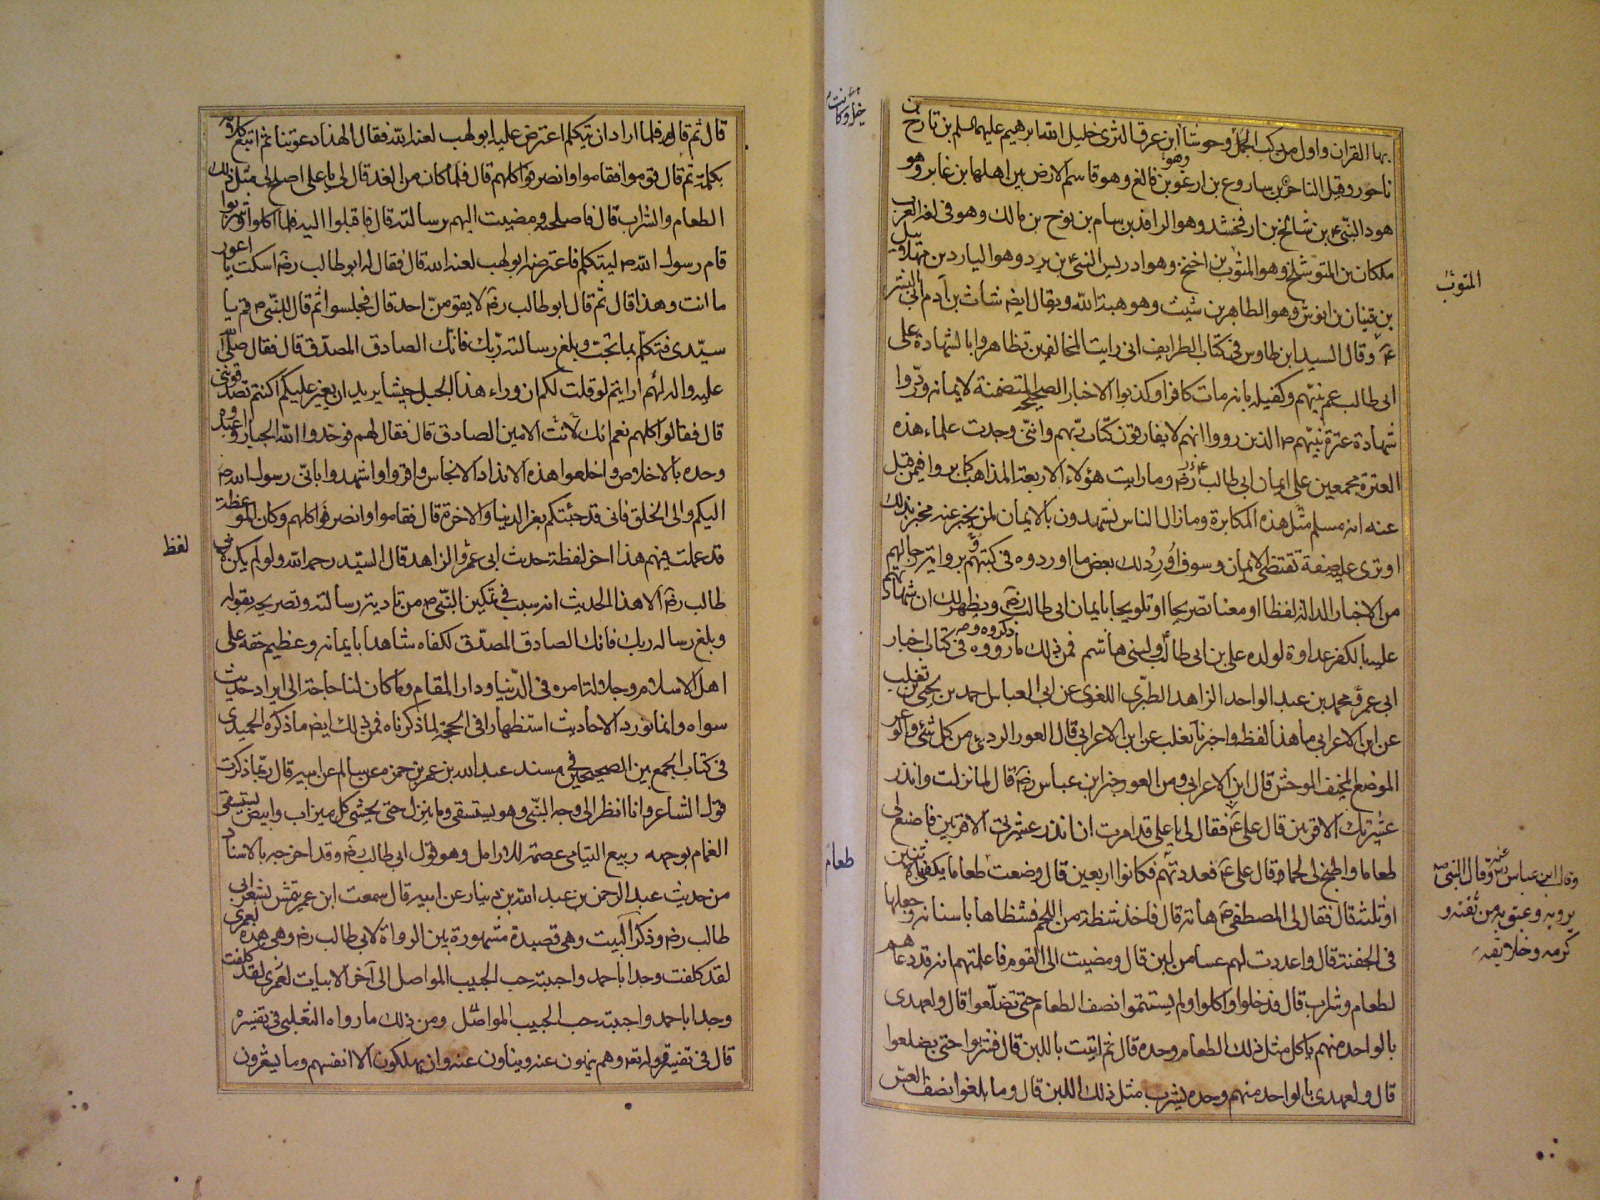 بها القران واول من ركب الجمل وحوشا ابن عرق الثرى خليل الله ابرهيم عليهما السلم بن تارخ بن
ناحور وقيل الناحر بن ساروع بن ارغو بن فالغ وهو قاسم الارض بين اهلها بن غابر وهو
هود النبي ع بن شالخ بن ارفخشد وهو الرافد بن سام بن نوح بن مالك وهو في لغة العرب
ملكان بن المتوشلخ وهو المثوب بن اخنخ وهو ادريس النبي ع بن يرد وهو اليارد بن مهلائيل
بن قينان بن انوش وهو الطاهر بن شيث وهو هبة الله ويقال ايضا شاث بن آدم ابى البشر
ع وقال السيد ابن طاوس في كتاب الطرايف انى رايت المخالفين تظاهروا بالشهادة على
ابى طالب عم نبيهم وكفيله بانه مات كافرا وكذبوا الاخبار الصحيحة المتضمنة لايمانه وردّوا
شهادة عترة نبيهم ص الذين رووا انهم لا يفارقون كتاب ربهم وانني وجدت علماء هذه
العترة مجمعين على ايمان ابى طالب رض وما رايت هؤلاء الاربعة المذاهب كابروا فيمن قيل
عنه انه مسلم مثل هذه المكابرة وما زال الناس يشهدون بالايمان لمن يخبر عنه مخبر بذلك
او ترى عليه صفة تقتضى الايمان وسوف اورد لك بعض ما اوردوه في كتبهم وبرواية رجالهم
من الاخبار الدالة لفظا او معنا تصريحا او تلويحا بايمان ابى طالب رض ويظهر لك ان شهادتهم
عليه بالكفر عداوة لولده على بن ابى طالب او لبنى هاشم فمن ذلك ما ذكروه ورووه في كتاب اخبار
ابى عمرو محمد بن عبد الواحد الزاهد الطبرى اللغوى عن ابى العباس احمد بن يحيى بن ثعلب
عن ابن الاعرابى ما هذا لفظه واخبرنا ثعلب عن ابن الاعرابى قال العور الردى من كل شئ والوعر
الموضع المخيف الموحش قال ابن الاعرابى ومن العور خبر ابن عباس رض قال لما نزلت وانذر
عشيرتك الاقربين قال على ع فقال لى يا على قد امرت ان انذر عشيرتى الاقربين فاصنع لى
طعاما واطبخ لى لحما قال على ع فعددتهم فكانوا اربعين قال وضعت طعاما يكفى لاثنين
او ثلثة قال فقال لى المصطفى ص هاته قال فاخذ شظة من اللحم فشظاها باسنانه وجعلها
في الجفنة قال واعددت لهم عسا من لبن قال ومضيت الى القوم فاعلمتهم انه قد دعاهم
لطعام وشراب قال فدخلوا واكلوا ولم يستتموا نصف الطعام حتى تضلّعوا قال ولعهدى
بالواحد منهم ياكل مثل ذلك الطعام وحده قال ثم اتيت باللبن قال فشربوا حتى تضلعوا
قال ولعهدى بالواحد منهم وحده يشرب مثل ذلك اللبن قال وما بلغوا نصف العس
المثوب
وقال ابن عباس رض وقال النبي ص
كرمه وخلايقه
طعام
قال ثم قال فلما اراد ان يتكلم اعترض عليه ابو لهب لعنه الله فقال الهذا دعوتنا ثم اتبع كلامه
بكلمة ثم قال قوموا فقاموا وانصرفوا كلهم قال فلما كان من الغد قال لى يا على اصلح لى مثل ذلك
الطعام والشراب قال فاصلحته ومضيت اليهم برسالته قال فاقبلوا اليه فلما اكلوا وشربوا
قام رسول الله ص ليتكلم فاعترضه ابو لهب لعنه الله قال فقال له ابو طالب رض اسكت يا اعور
ما انت وهذا قال ثم قال ابو طالب رض لا يقومنّ احد قال فجلسوا ثم قال للنبى ص قم يا
سيّدى فتكلم بما تحب وبلغ رسالة ربّك فانك الصادق المصدّق قال فقال صلى الله
عليه واله لهم ارايتم لو قلت لكم ان وراء هذا الجبل جيشا يريد ان يغير عليكم اكنتم تصدقونى
قال فقالوا كلهم نعم انك لانت الامين الصادق قال فقال لهم فوحّدوا الله الجبار واعبدوه
وحده بالاخلاص واخلعوا هذه الانداد الانجاس واقروا واشهدوا بانّى رسول الله ص
اليكم والى الخلق فانى قد جئتكم بعز الدنيا والاخرة قال فقاموا وانصرفوا كلهم وكان الموعظة
قد عملت فيهم هذا اخر لفظة حديث ابى عمرو الزاهد قال السيّد رحمه الله ولو لم يكن لابى
طالب رض الا هذا الحديث انه سبب في تمكين النبى ص من تادية رسالته وتصريحه بقوله
وبلغ رسالة ربك فانك الصادق المصدّق لكفاه شاهدا بايمانه وعظيم حقه على
اهل الاسلام وجلالة امره في الدّنيا ودار المقام وما كان لنا حاجة الى ايراد حديث
سواه وانما نورد الاحاديث استظهارا في الحجة لما ذكرناه فمن ذلك ايضا ما ذكره الحميدى
في كتاب الجمع بين الصحيحين في مسند عبد الله بن عمر بن حمزة عن سالم عن ابيه قال ربما ذكرت
قول الشاعر وانا انظر الى وجه النبى وهو يستسقى وما ينزل حتى يجيش كل ميزاب وابيض يستسقى
الغمام بوجهه ربيع اليتامى عصمة للارامل وهو قول ابى طالب رض وقد اخرجه بالاسناد
من حديث عبد الرحمن بن عبد الله بن دينار عن ابيه قال سمعت ابن عمر يتمثل بشعر ابى
طالب رض وذكر البيت وهى قصيدة مشهورة بين الرواة لابى طالب رض وهى هذه لعمرى
لقد كلفت وجدا باحمد واحببته حب الحبيب المواصل الى آخر الابيات لعمرى لقد كلفت
وجدا باحمد واحببته حب الحبيب المواصل ومن ذلك ما رواه الثعلبى في تفسيره
قال في تفسير قوله تع وهم ينهون عنه وينأون عنه وان يهلكون الا انفسهم وما يشعرون
لفظ